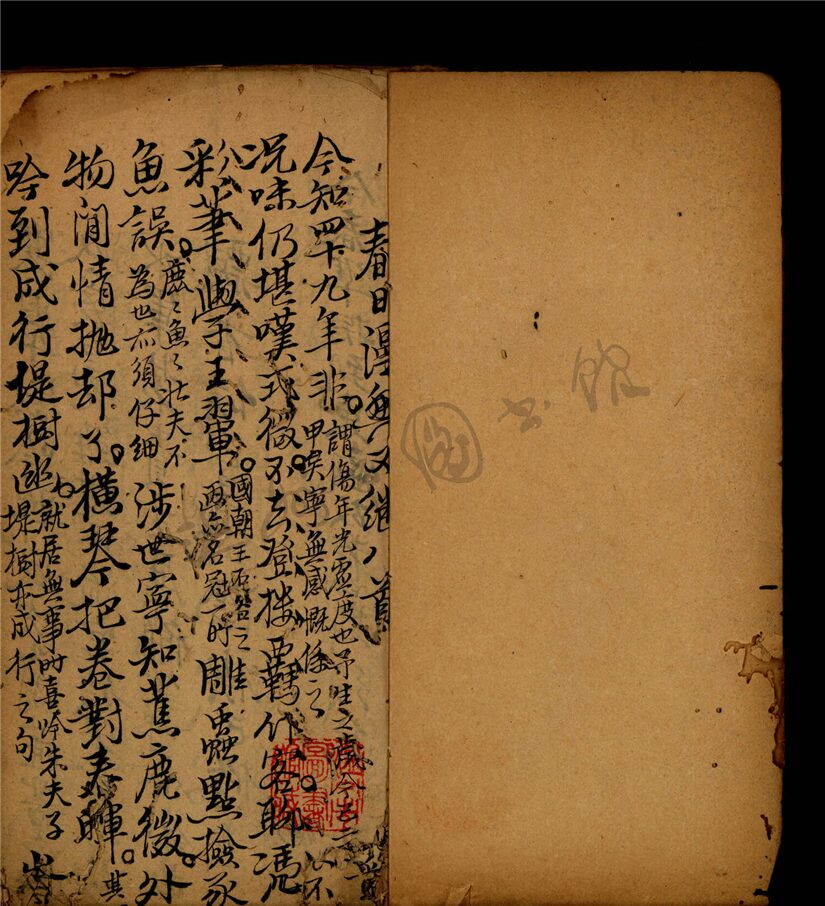 春日漫興又繼八首
今知四十九年非。謂傷年光虛度也予生之歲今
甲矣寧無感慨係之 不
況味仍堪嘆式微不去登樓羈作客聊凭
彩筆學王翬。國朝王石谷之
亦名冠一时 雕蟲點撿豕
魚誤。鹿〻魚〻壯夫不
為也亦須仔細 涉世寧知蕉鹿微。外
物閒情抛却了。橫琴把卷對春暉。其
吟到成行堤樹 就居無事时喜吟朱夫子
堤樹亦成行之句
圖书館